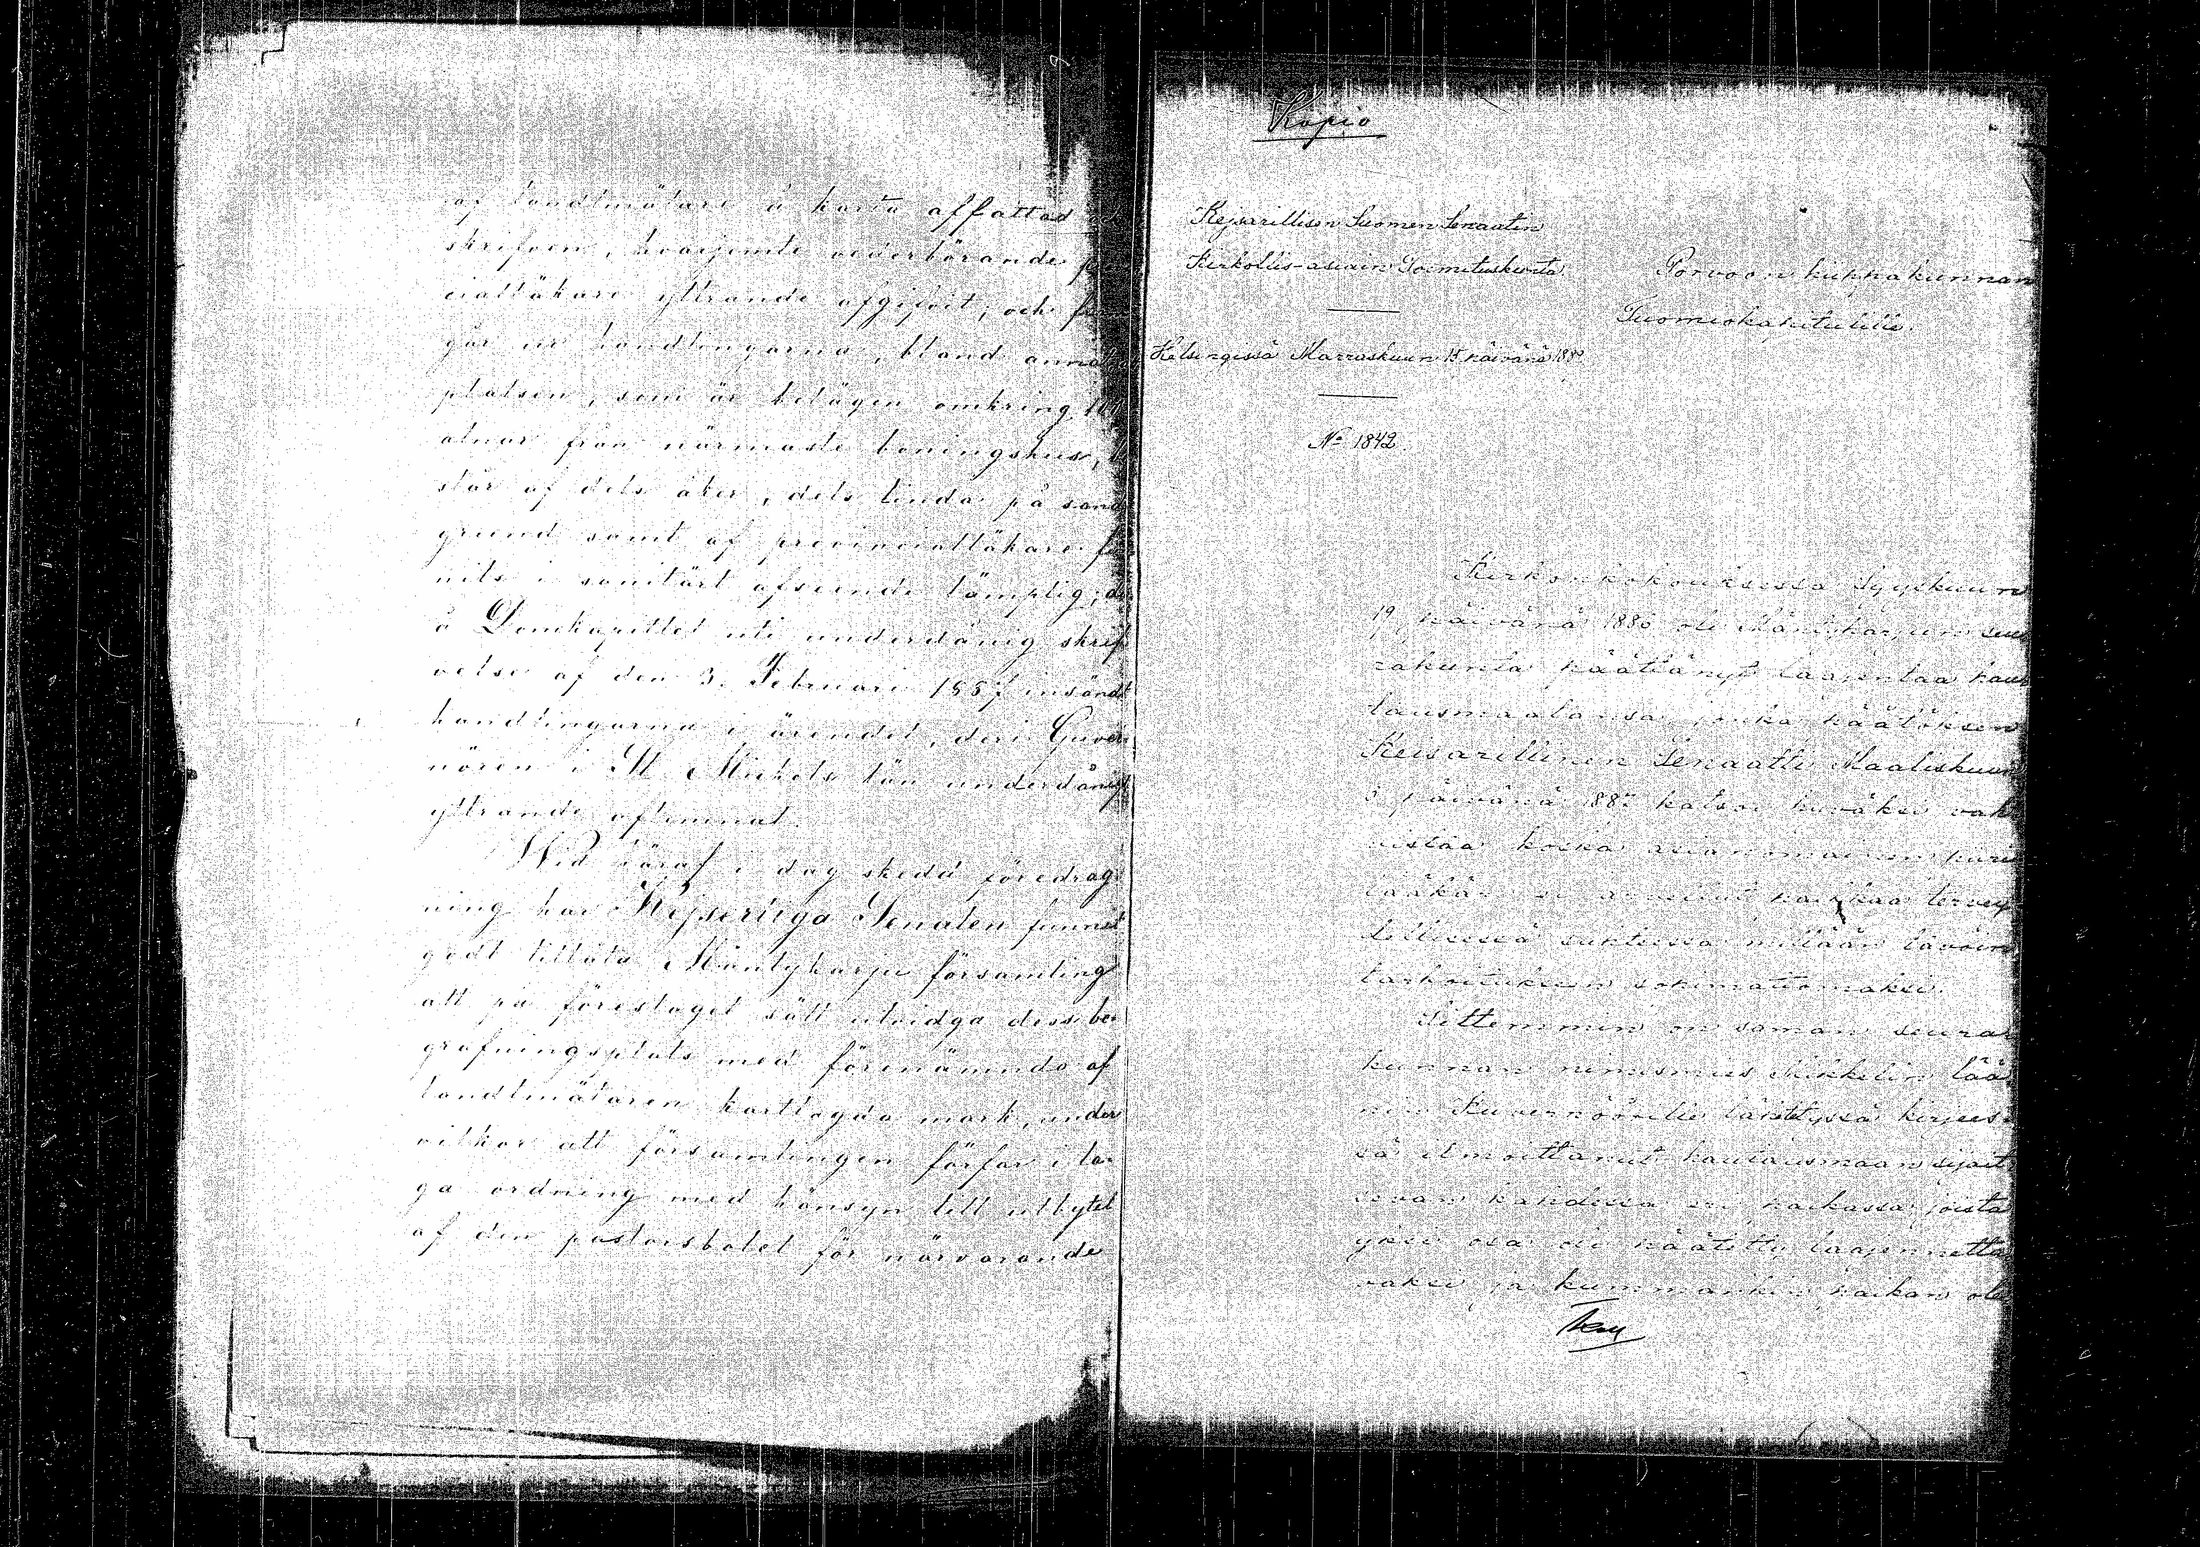 af landtmätare å karta affattad
skrifven, hvarjemte vederbörande
cialläkare yttrande afgifvit; och
går ur handlingarna, bland annat
platsen, som är belägen omkring
alnar från närmaste boningshus,
står af dels åker, dels linda på sand
grund samt af provincialläkare
nits i sanitärt afseende lämplig;
å Domkapitlet uti underdånig skrif
velse af den 3. Februari 1887 insändt
handlingarna i ärendet, deri Guver
nören i St Michels län underdånigt
yttrande aflemnat.
Wid häraf i dag skedd föredrag
ning har Kejserliga Senaten funnit
godt tillåta Mäntyharju församling
att på föreslaget sätt utvidga dess be-
grafningsplats med förenämnda af
landtmätaren kartlagda mark, under
vilkor att församlingen förfar i la-
ga ordning med hänsyn till utbytet
af den pastorsbolet för närvarande
Kopio
Kejsarillisen Suomen Senaatin
Kirkollis-asiain Toimituskunta
Porvoon hiippakunnan
Tuomiokapitulille.
Helsingissä Marraskuun 15 päivänä
No 1842.
Kirkonkokouksessa Syyskuun
19 päivänä 1886 oli Mäntyharjun seu
rakunta päättänyt laajentaa hau
tausmaatansa, jonka päätöksen
Keisarillinen Senaatti Maaliskuun
3 päivänä 1887 katsoi hyväksi vah
vistaa koska asianomainen piiri
lääkäri ei arvellut paikkaa tervey
dellisessä suhteessa millään tavoin
tarkoitukseen sopimattomaksi.
Sittemmin on saman seura-
kunnan nimismies Mikkelin lää
nin Kuvernöörille lähetetyssä kirjees-
sä ilmoittanut hautausmaan sijait
sevan kahdessa eri paikassa, joista
yksi osa oli päätetty laajennetta
vaksi ja kummankin paikan ole